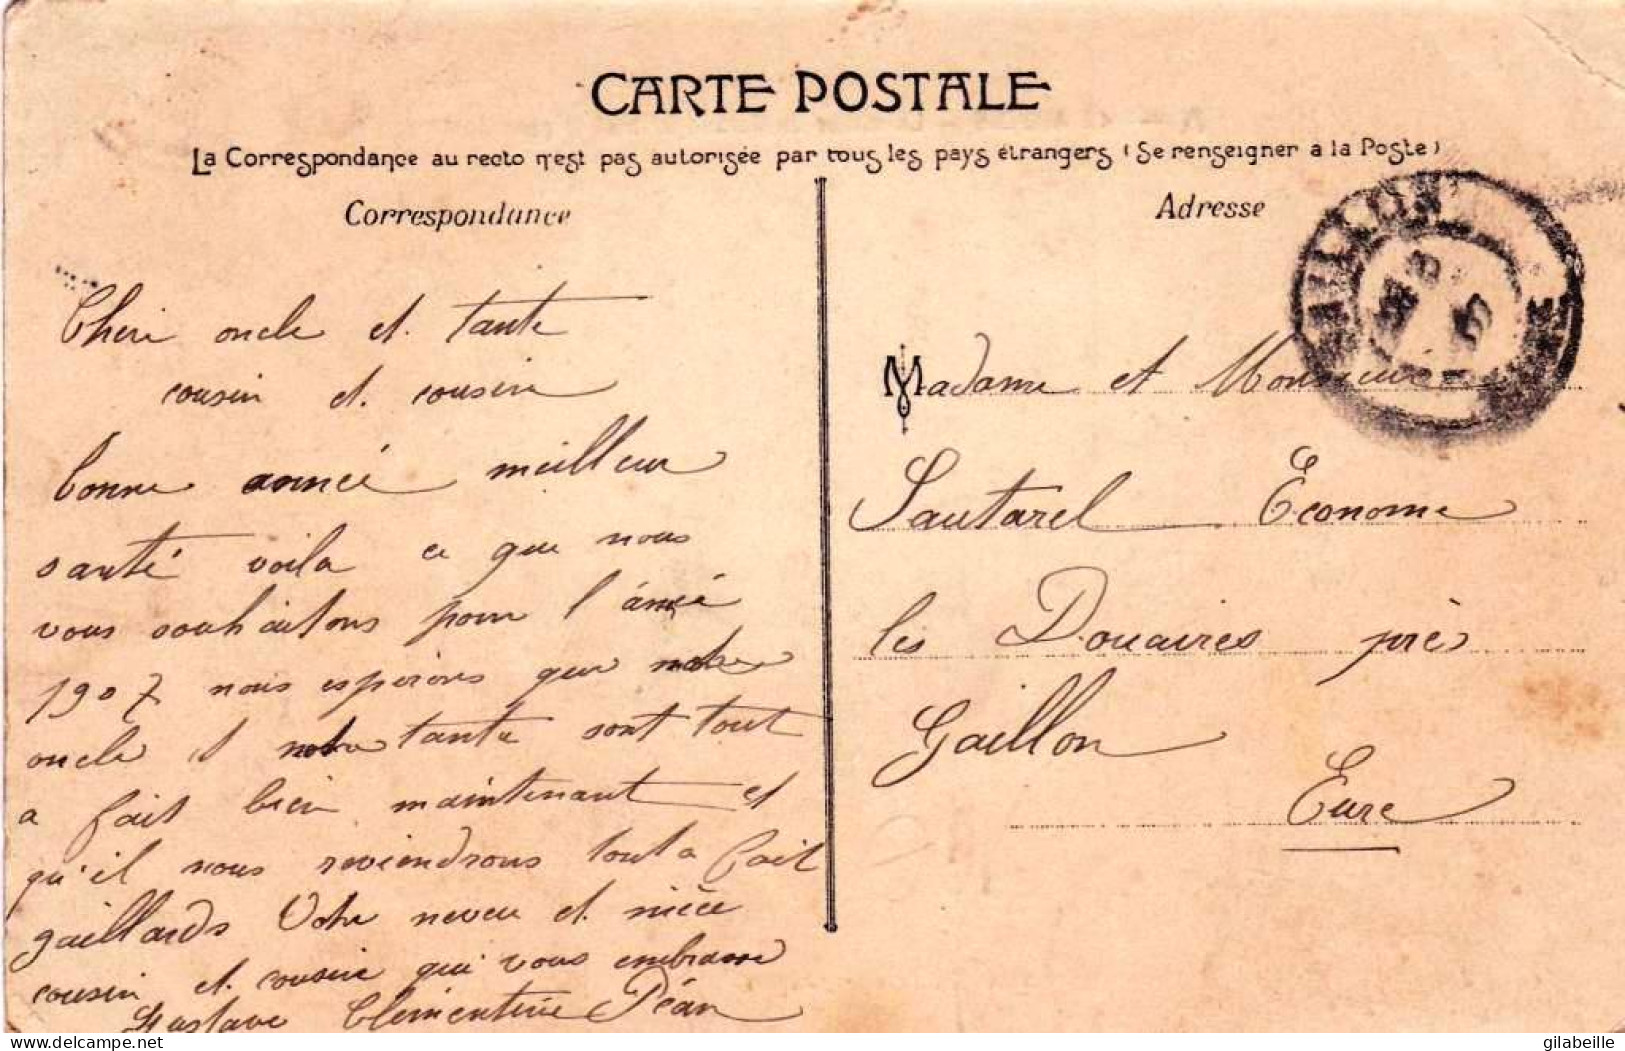 CARTE POSTALE
La Correspondance au recto n'est pas autorisée par tous les pays étrangers (Se renseigner a la Poste)
Correspondance
Cheri oncle et tante
cousin et cousine
bonne année meilleur
santé voila ce que nous
vous souhaitons pour l'anné
1907 nous esperons que notre
oncle et notre tante sont tout
a fait bien maintenant et
qu'il nous reviendrons tout a fait
gaillards Votre neveu et nièce
cousin et cousine qui vous embrasse
Gustave Clémentine Péan
Adresse
AILLON
Madame et Monsieur
Sautarel Econome
les Douaires près
Gaillon
Eure
delcampe.net
gilabeille